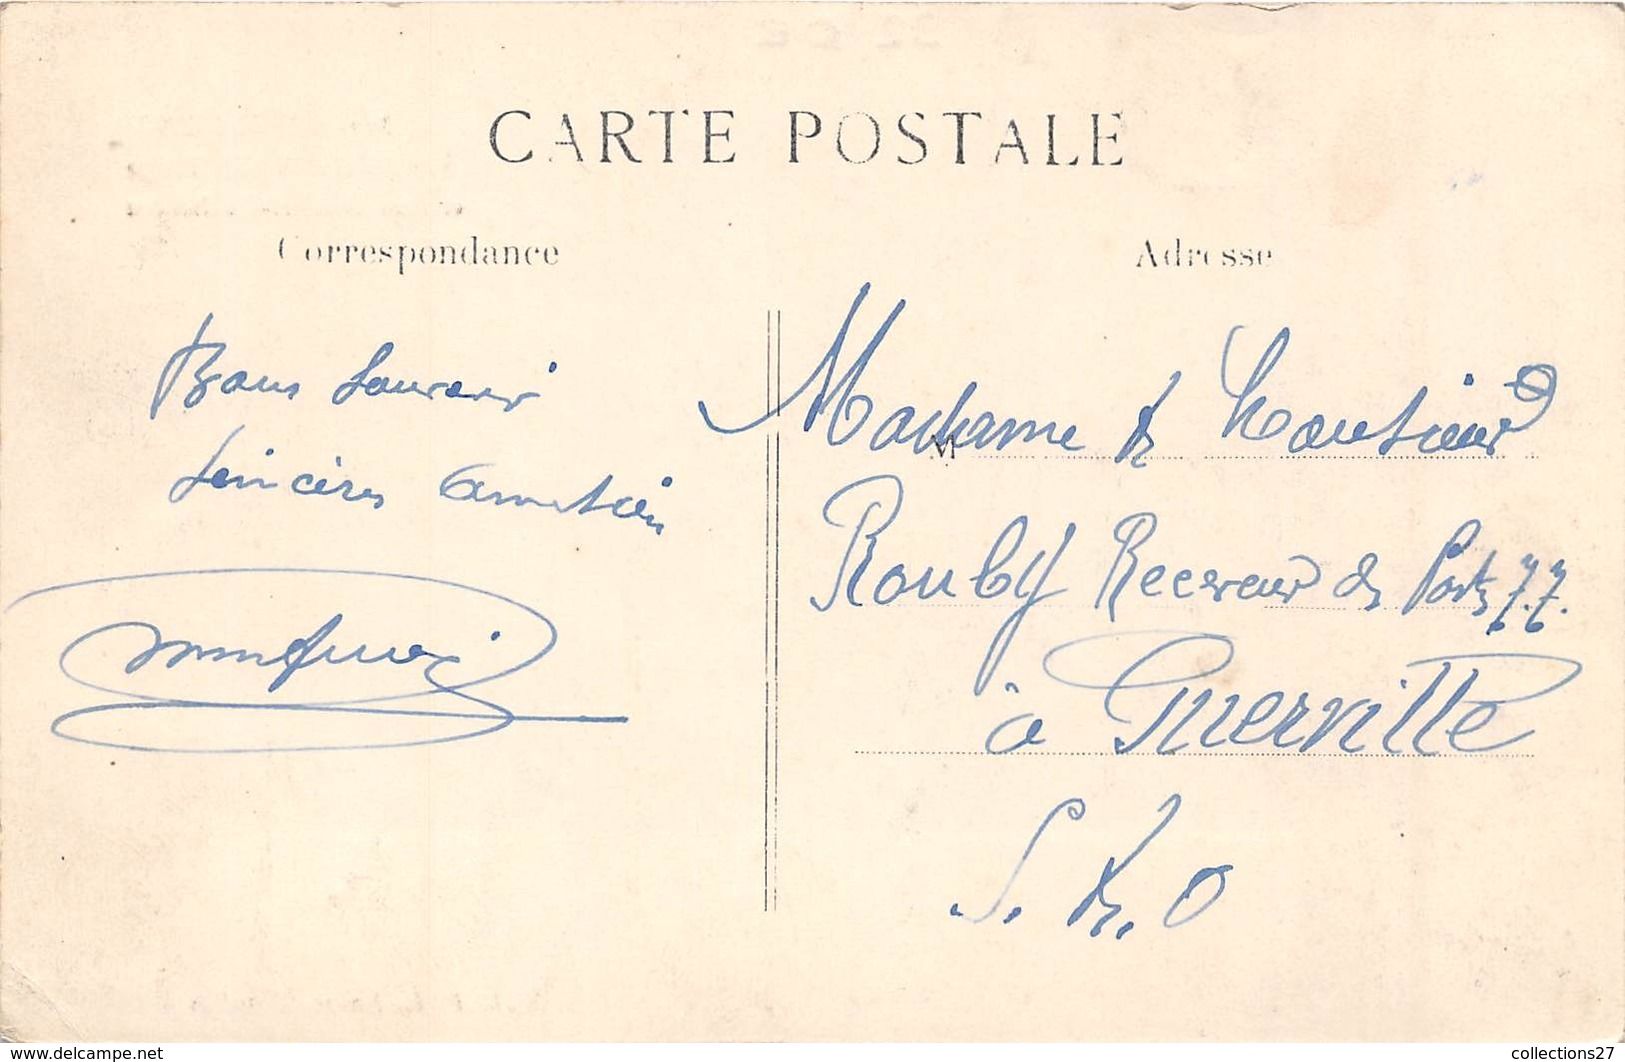 CARTE POSTALE
Correspondance
Adresse
Bons Souvenir
Sincères Amitiés
Madame & Monsieur
Rouby Receveur des Postes
à Guerville
S. & O
www.delcampe.net
collections27